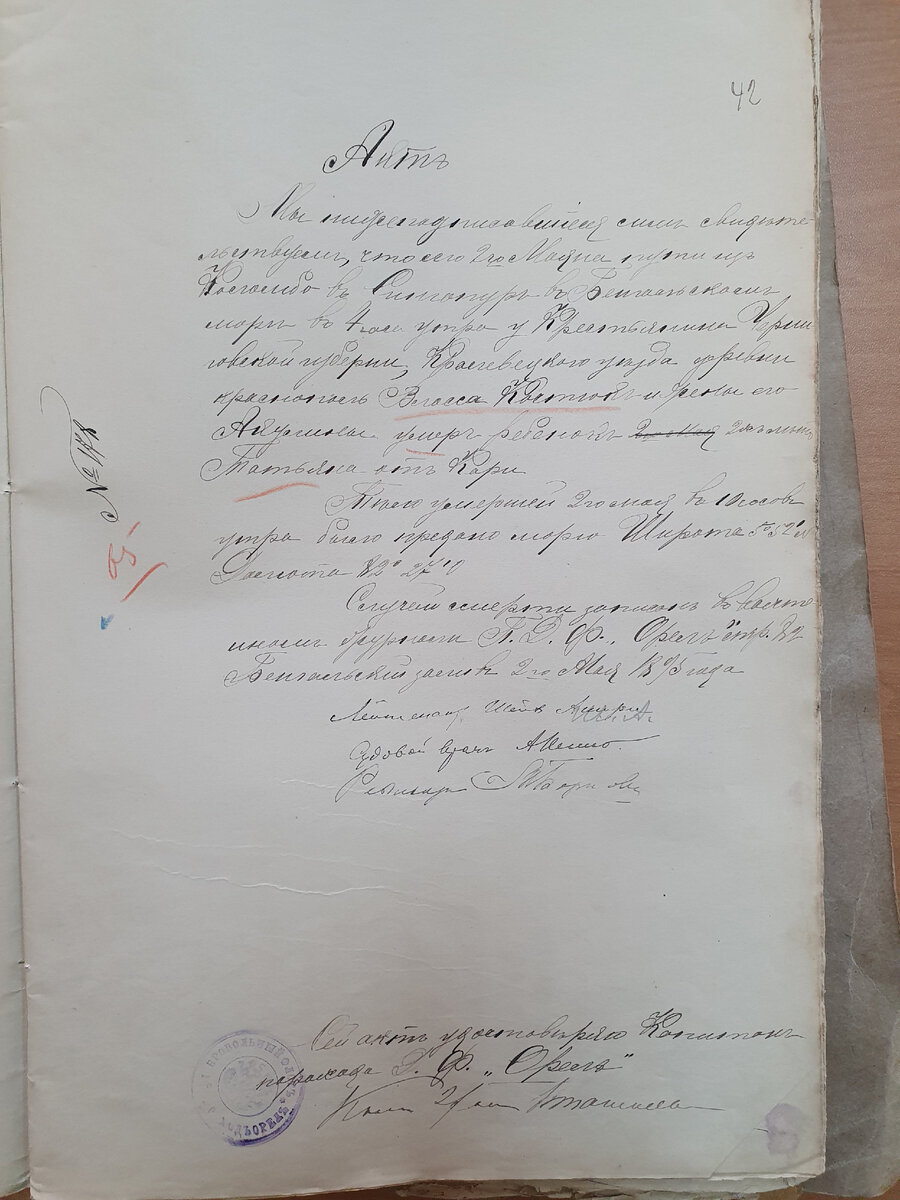 42
Актъ
Мы нижеподписавшіеся симъ свидѣте-
льствуемъ, что сего 2го Мая на пути изъ
Коломбо въ Сингапуръ въ Бенгальскомъ
морѣ въ 4 часа утра у Крестьянина Черни
говской губерніи, Кролевецкого уѣзда деревни
Краснополь Власса и жены его
умеръ ребенокъ 2хъ лѣтъ
Татьяна отъ Кори
Тѣло умершей 2го мая въ 10 часовъ
утра было предано морю Широта 5° 52' N
Долгота 82° 27' O
Случай смерти записанъ въ вахте-
нномъ журналѣ П. Д. Ф. „Орелъ" стр. 82
Бенгальскій заливъ 2го Мая 1895 года
Лейтенантъ
Судовой врачъ
Ревизоръ
№ 148
65
Сей актъ удостовѣряю Капитанъ
парохода Д. Ф. „Орелъ"